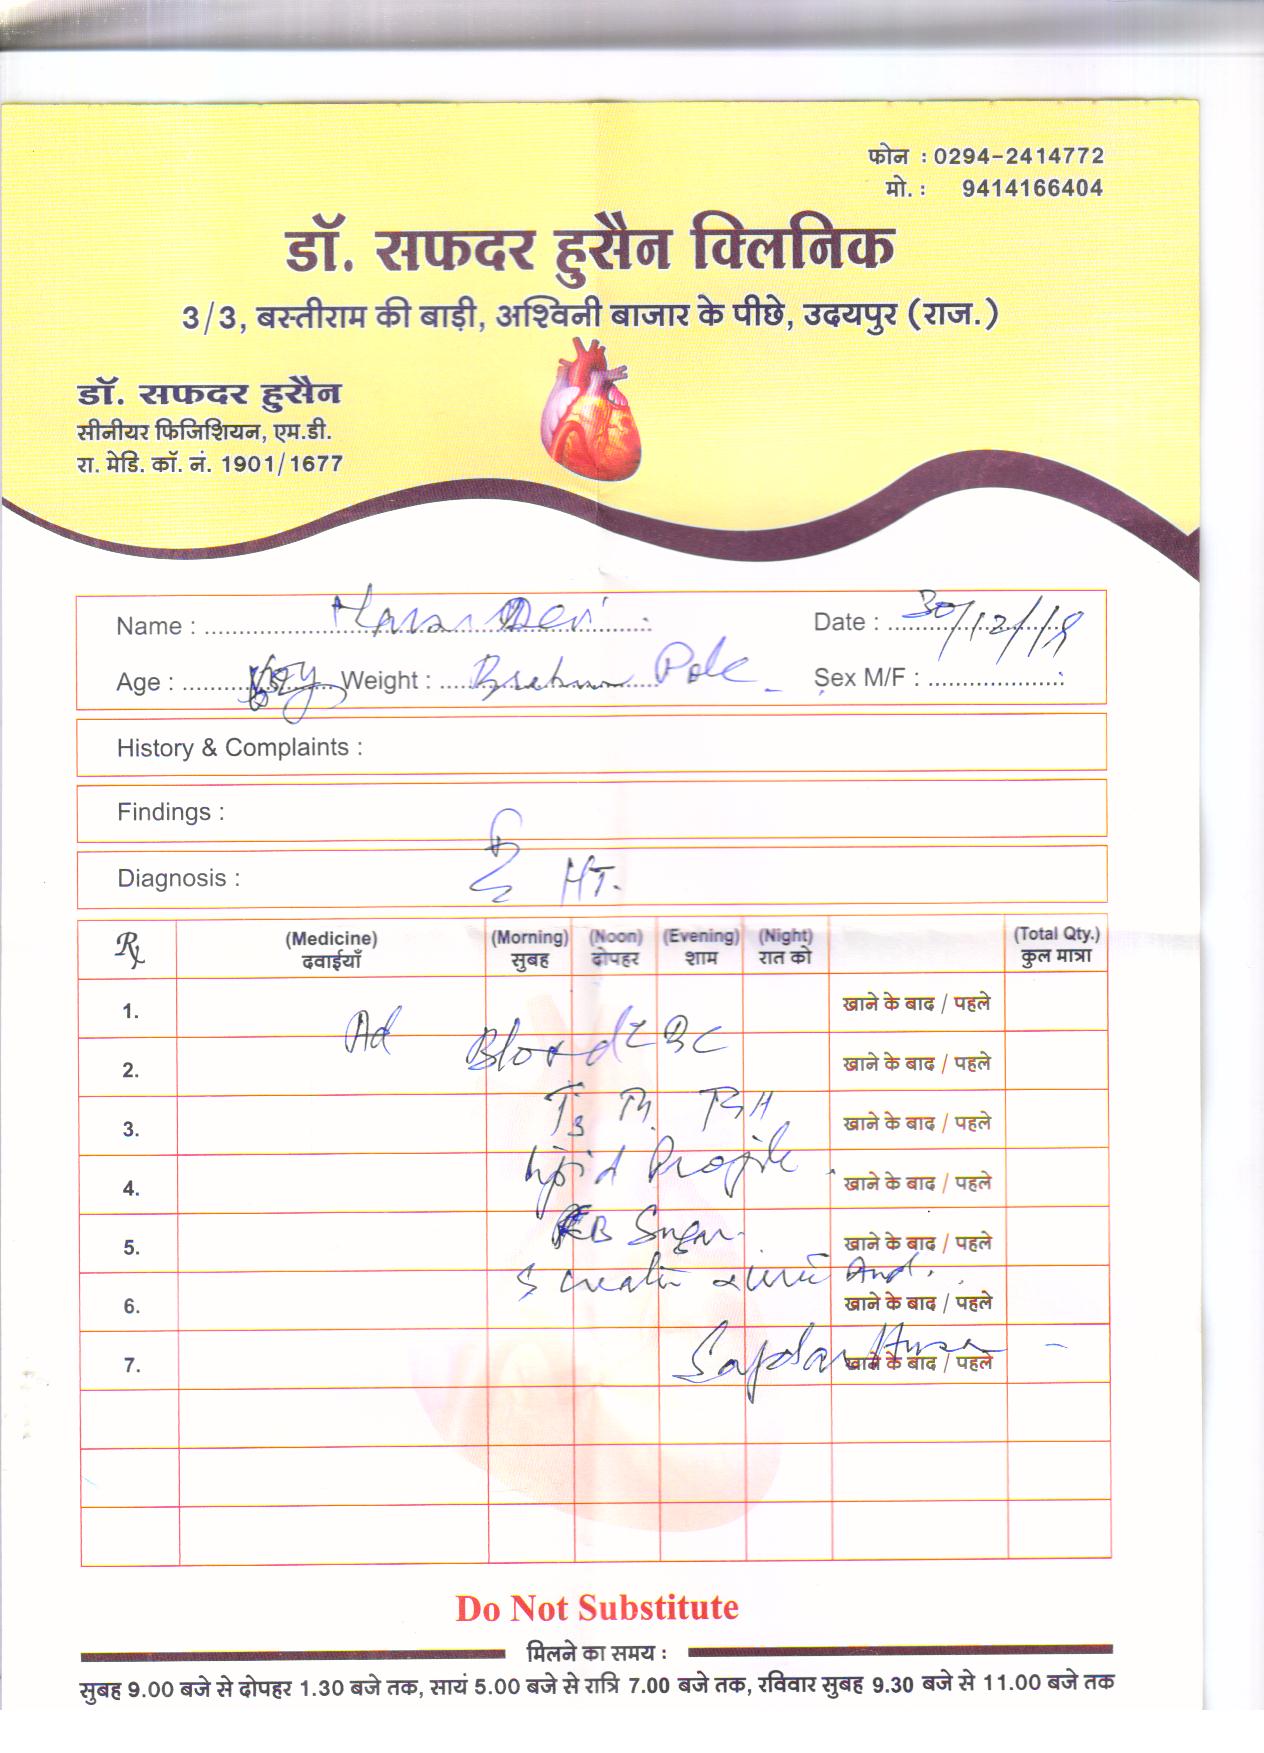 फोन : 0294-2414772
मो. : 9414166404
डॉ. सफदर हुसैन क्लिनिक
3/3, बस्तीराम की बाड़ी, अश्विनी बाजार के पीछे, उदयपुर (राज.)
डॉ. सफदर हुसैन
सीनीयर फिजिशियन, एम.डी.
रा. मेडि. कॉ. नं. 1901/1677
Name : Devi Date : 30/12/18
Age : Weight : Pole Sex M/F :
History & Complaints :
Findings :
Diagnosis : HT.
Rx (Medicine) (Morning) (Noon) (Evening) (Night) (Total Qty.)
दवाईयाँ सुबह दोपहर शाम रात को कुल मात्रा
1. खाने के बाद / पहले
Ad Blood BC
2. खाने के बाद / पहले
3. T3 TSH खाने के बाद / पहले
Lipid Profile
4. खाने के बाद / पहले
5. B Sugar खाने के बाद / पहले
S creatin
6. खाने के बाद / पहले
7. Safdar खाने के बाद / पहले
Do Not Substitute
मिलने का समय :
सुबह 9.00 बजे से दोपहर 1.30 बजे तक, सायं 5.00 बजे से रात्रि 7.00 बजे तक, रविवार सुबह 9.30 बजे से 11.00 बजे तक